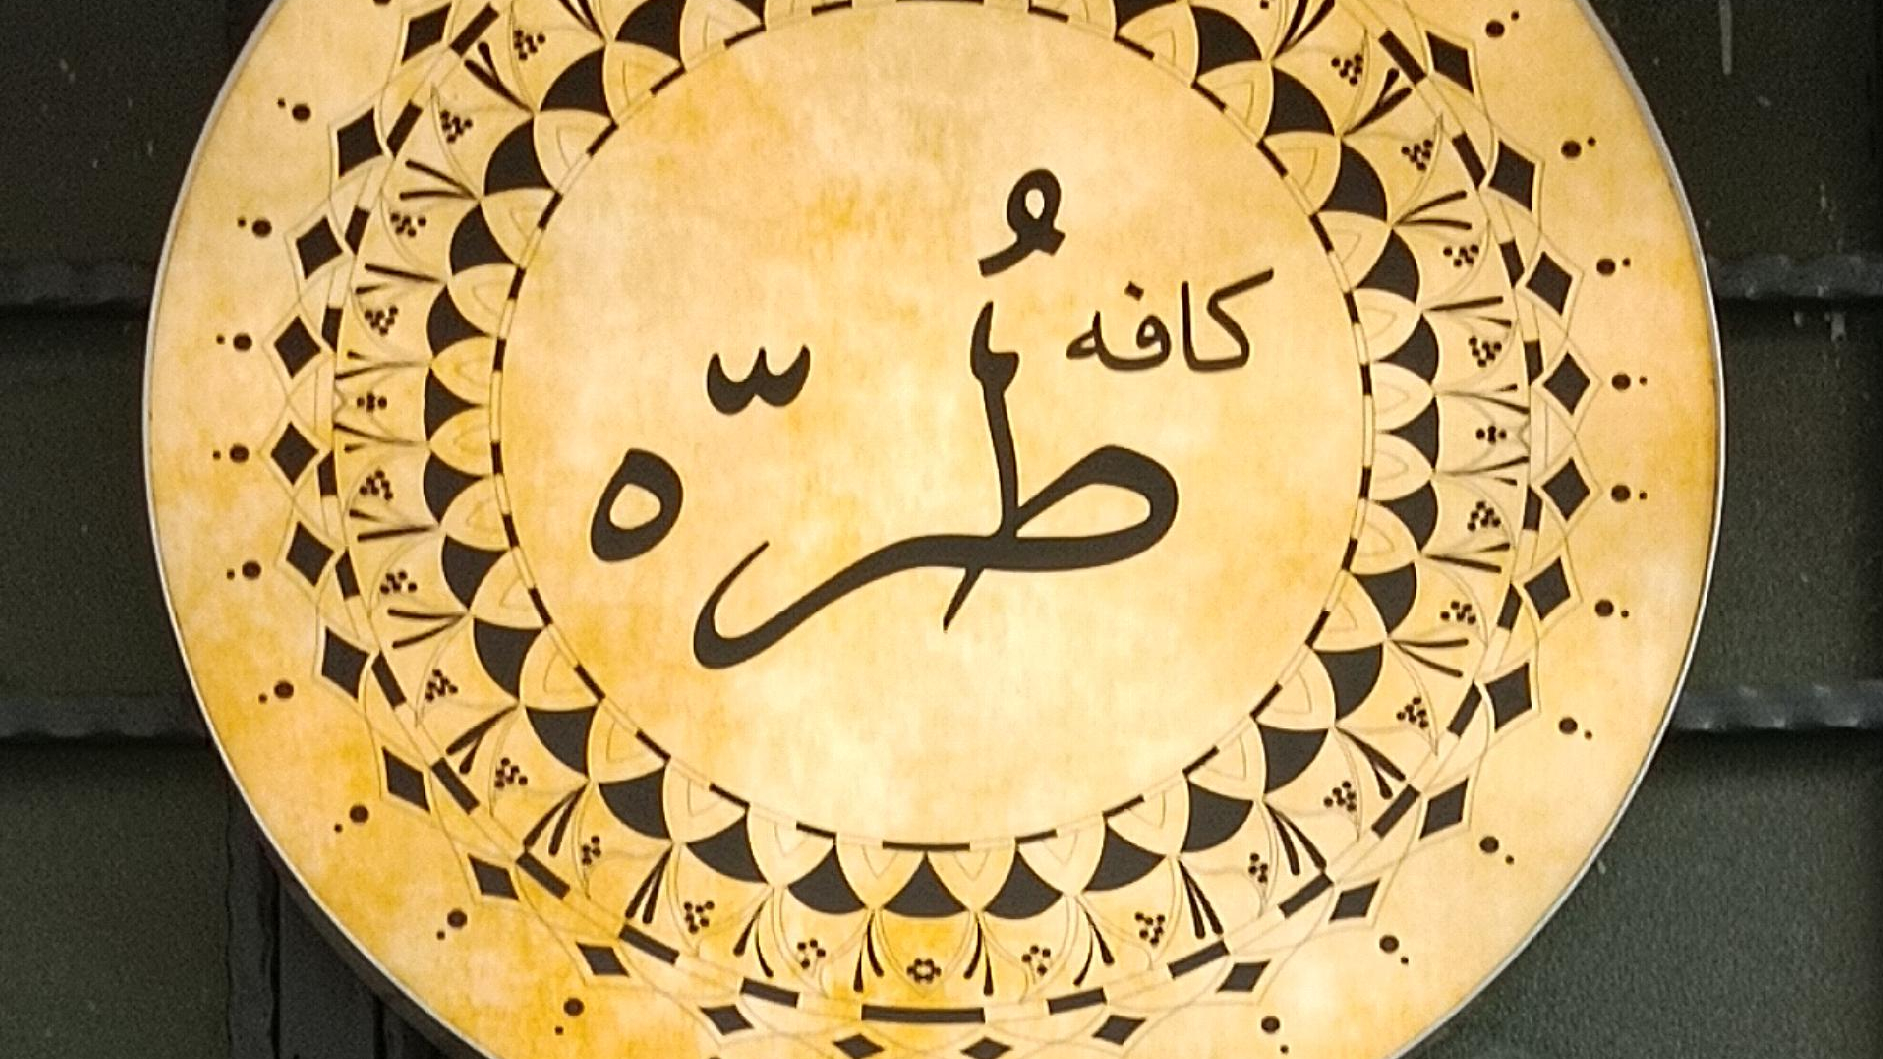 کافه
طُرّه